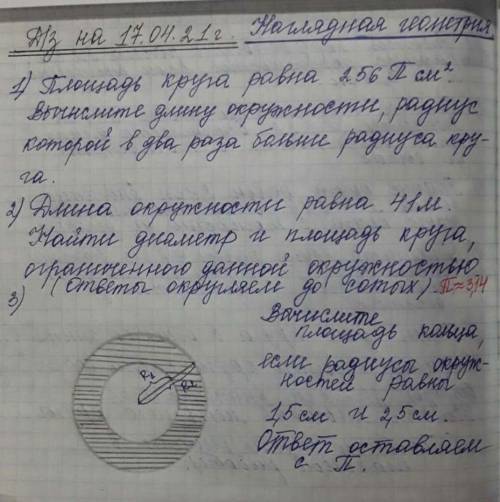 Д/з на 17.04.21г. Наглядная геометрия
1) Площадь круга равна 256 П см².
Вычислите длину окружности, радиус
которой в два раза больше радиуса кру-
га.
2) Длина окружности равна 41м.
Найти диаметр и площадь круга,
ограниченного данной окружностью
(Ответы округляем до сотых). П≈3,14
3)
Вычислите
площадь кольца,
если радиусы окруж-
ностей равны
1,5см и 2,5см.
Ответ оставляем
с П.
R₁ R₂